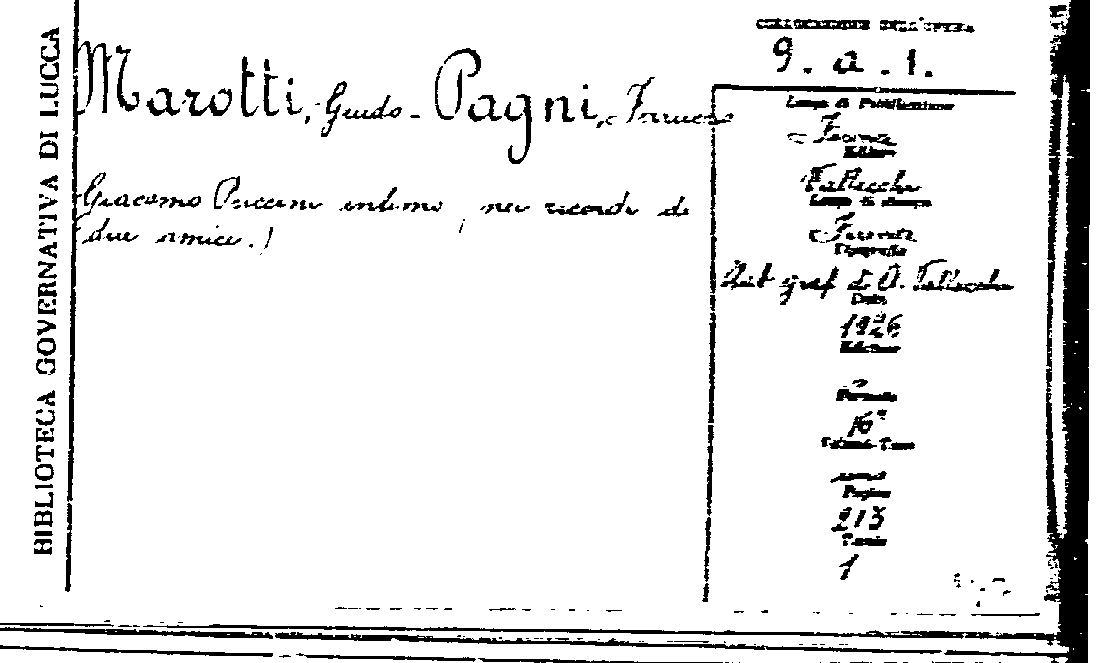 BIBLIOTECA GOVERNATIVA DI LUCCA
COLLOCAZIONE DELL'OPERA
9. a. 1.
Marotti, Guido - Pagni, Ferruccio
Giacomo Puccini intimo, nei ricordi di
(due amici.)
Luogo di Pubblicazione
Firenze
Editore
Vallecchi
Luogo di stampa
Firenze
Tipografia
Stab graf di A. Vallecchi
Data
1926
Edizione
Formato
16°
Volume-Tomo
Pagine
213
Tavole
1